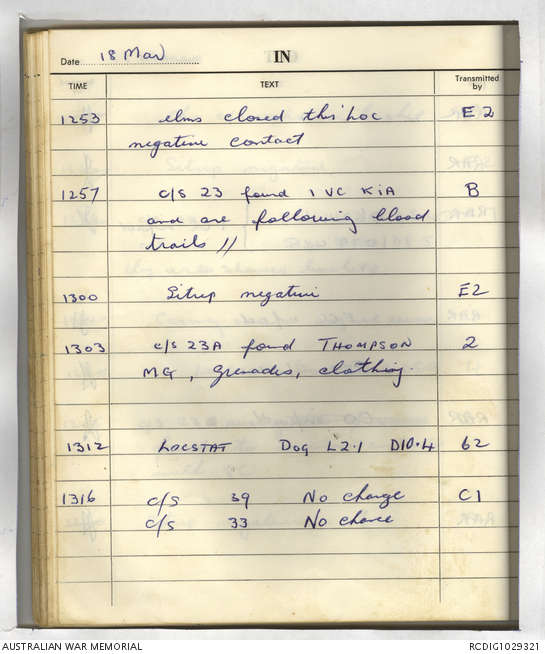 Date 18 Mar IN
TIME TEXT Transmitted by
1253 elms closed this loc E2
negative contact
1257 c/s 23 found 1 VC KiA B
and are following blood
trails //
1300 Sitrep negative E2
1303 c/s 23A found THOMPSON 2
MG, Grenades, clothing.
1312 LOCSTAT Dog L2.1 D10.4 62
1316 c/s 39 No change C1
c/s 33 No chance
AUSTRALIAN WAR MEMORIAL RCDIG1029321